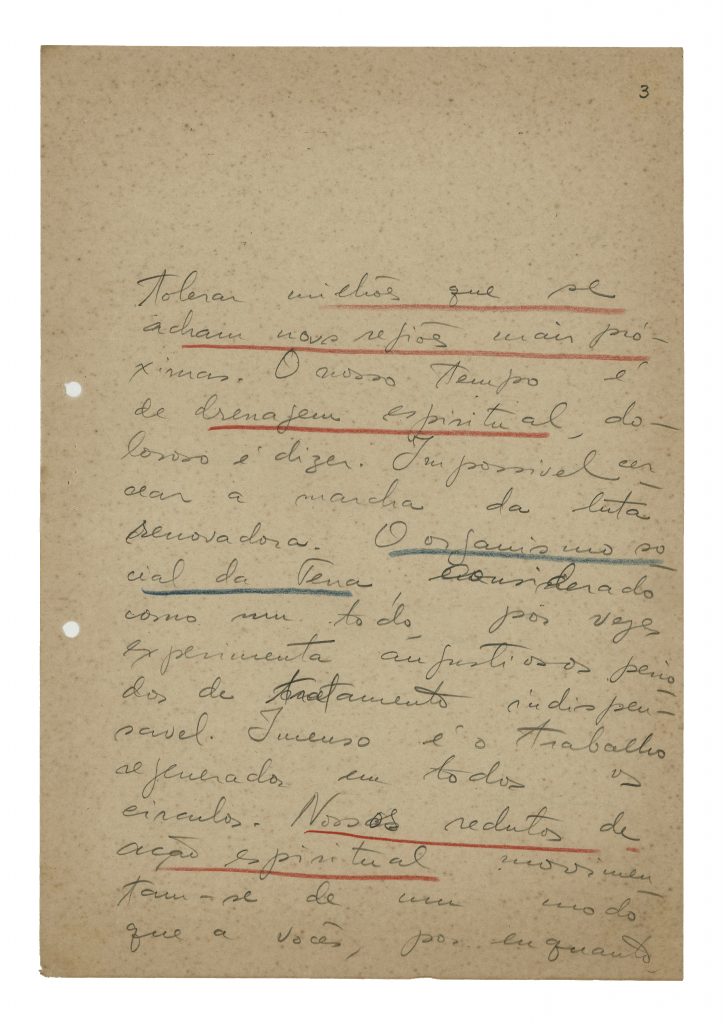 3
tolerar milhões que se
acham nas regiões mais pró-
ximas. O nosso tempo é
de drenagem espiritual, do-
loroso é dizer. Impossivel cer-
cear a marcha da luta
renovadora. O organismo so
cial da Terra, considerado
como um todo por vezes
experimenta angustiosos perio-
dos de tratamento indispen-
savel. Imenso é o trabalho
regenerador em todos os
circulos. Nossos redutos de
ação espiritual movimen-
tam-se de um modo
que a vocês, por enquanto,